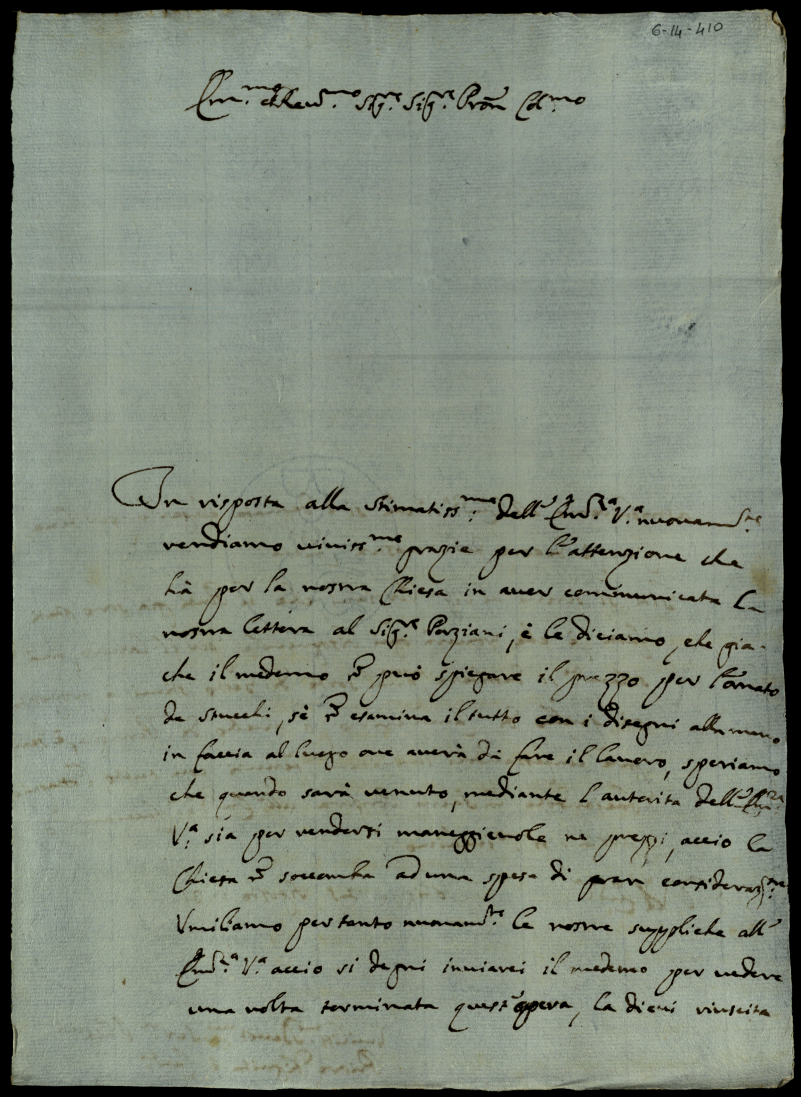 6-14-410
Em.mo e Reud.mo Sig.re Sig.re Pron Col.mo
In risposta alla stimatiss.ma dell' Em.za V.a nuouam.te
rendiamo uiuiss.me grazie per l'attenzione che
hà per la nostra Chiesa in auer communicata la
nostra lettera al Sig.re Porziani, è le diciamo, che gia-
che il medemo può spiegare il prezzo per l'ornato
de stucchi, sè esamina il tutto con i disegni alla mano
in faccia al luogo oue auerà dà fare il lauoro, speriamo
che quando sarà uenuto, mediante l'autorita dell' Em.za
V.a sia per rendersi maneggieuole ne prezzi, accio la
Chiesa soccomba ad una spesa di gran consideraz.ne
Vmiliamo pertanto nuouam.te le nostre suppliche all'
Em.za V.a accio si degni inuiarci il medemo per uedere
una uolta terminata quest'opera, la di cui riuscita